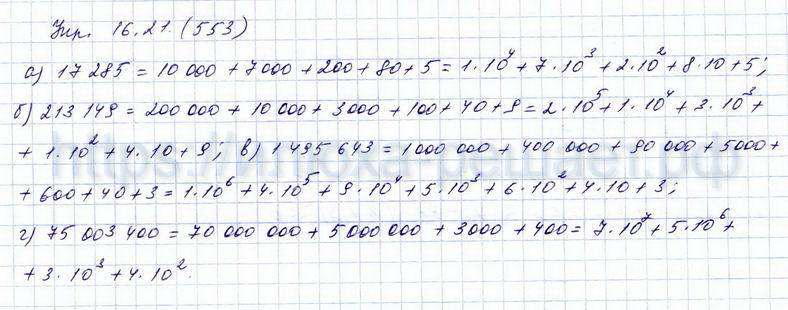 Упр. 16.21. (553)
а) 17 285 = 10 000 + 7000 + 200 + 80 + 5 = 1·10⁴ + 7·10³ + 2·10² + 8·10 + 5;
б) 213 149 = 200 000 + 10 000 + 3000 + 100 + 40 + 9 = 2·10⁵ + 1·10⁴ + 3·10³ +
+ 1·10² + 4·10 + 9; в) 1 495 643 = 1000 000 + 400 000 + 90 000 + 5000 +
+ 600 + 40 + 3 = 1·10⁶ + 4·10⁵ + 9·10⁴ + 5·10³ + 6·10² + 4·10 + 3;
г) 75 003 400 = 70 000 000 + 5 000 000 + 3000 + 400 = 7·10⁷ + 5·10⁶ +
+ 3·10³ + 4·10².